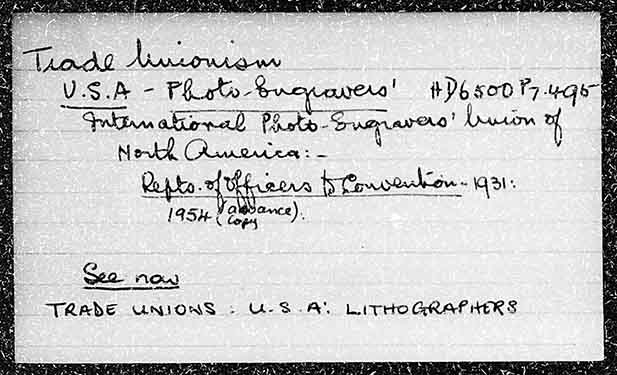 Trade Unionism
U.S.A - Photo-Engravers' HD6500 P7.495
International Photo-Engravers' Union of
North America:-
Repts. of officers to Convention - 1931:
1954 (advance copy).
See now
TRADE UNIONS : U.S.A: LITHOGRAPHERS